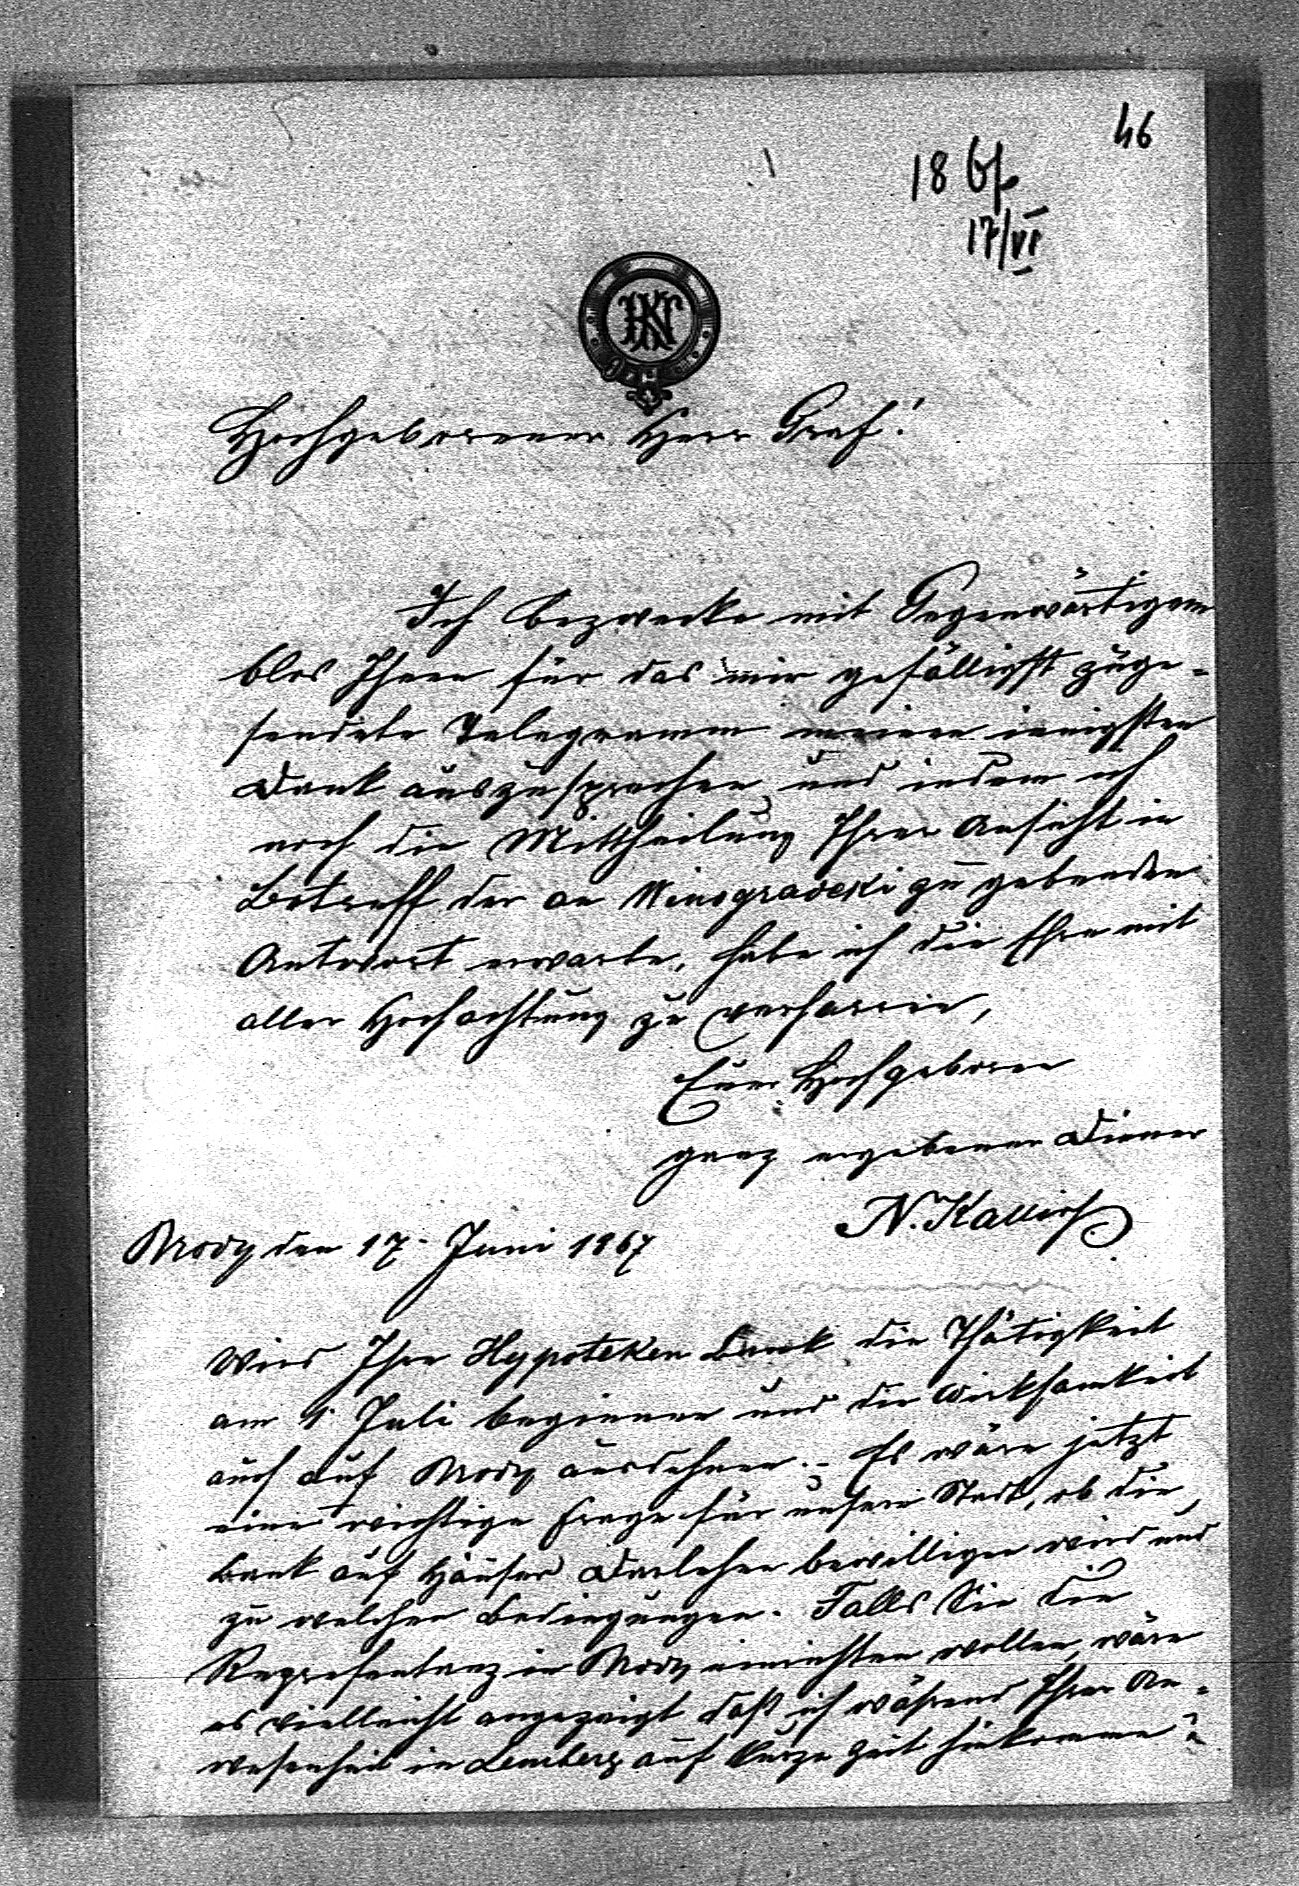 46
18 67
17/VI
Hochgeborener Herr Graf!
Ich bezwecke mit Gegenwärtigem
blos Ihnen für das mir gefälligst zuge-
sendete Telegramm meinen innigsten
Dank auszusprechen und indem ich
noch die Mittheilung Ihrer Ansicht in
Betreff der an Winogradski zu gebenden
Antwort erwarte, habe ich die Ehre mit
aller Hochachtung zu verharren,
Euer Hochgeboren
ganz ergebener Diener
N. Kallir
Brody den 17. Juni 1867
Wird Ihre Hypoteken Bank die Thätigkeit
am 1. Juli beginnen und die Wirksamkeit
auch auf Brody ausdehnen. – Es wäre jetzt
eine wichtige Frage für unsere Stadt, ob die
Bank auf Häuser Darlehen bewilligen wird und
zu welchen Bedingungen. Falls Sie die
Represententanz in Brody einrichten wollen, wäre
es vielleicht angezeigt daß ich während Ihrer An-
wesenheit in Lemberg auf kurze Zeit hinkomme?